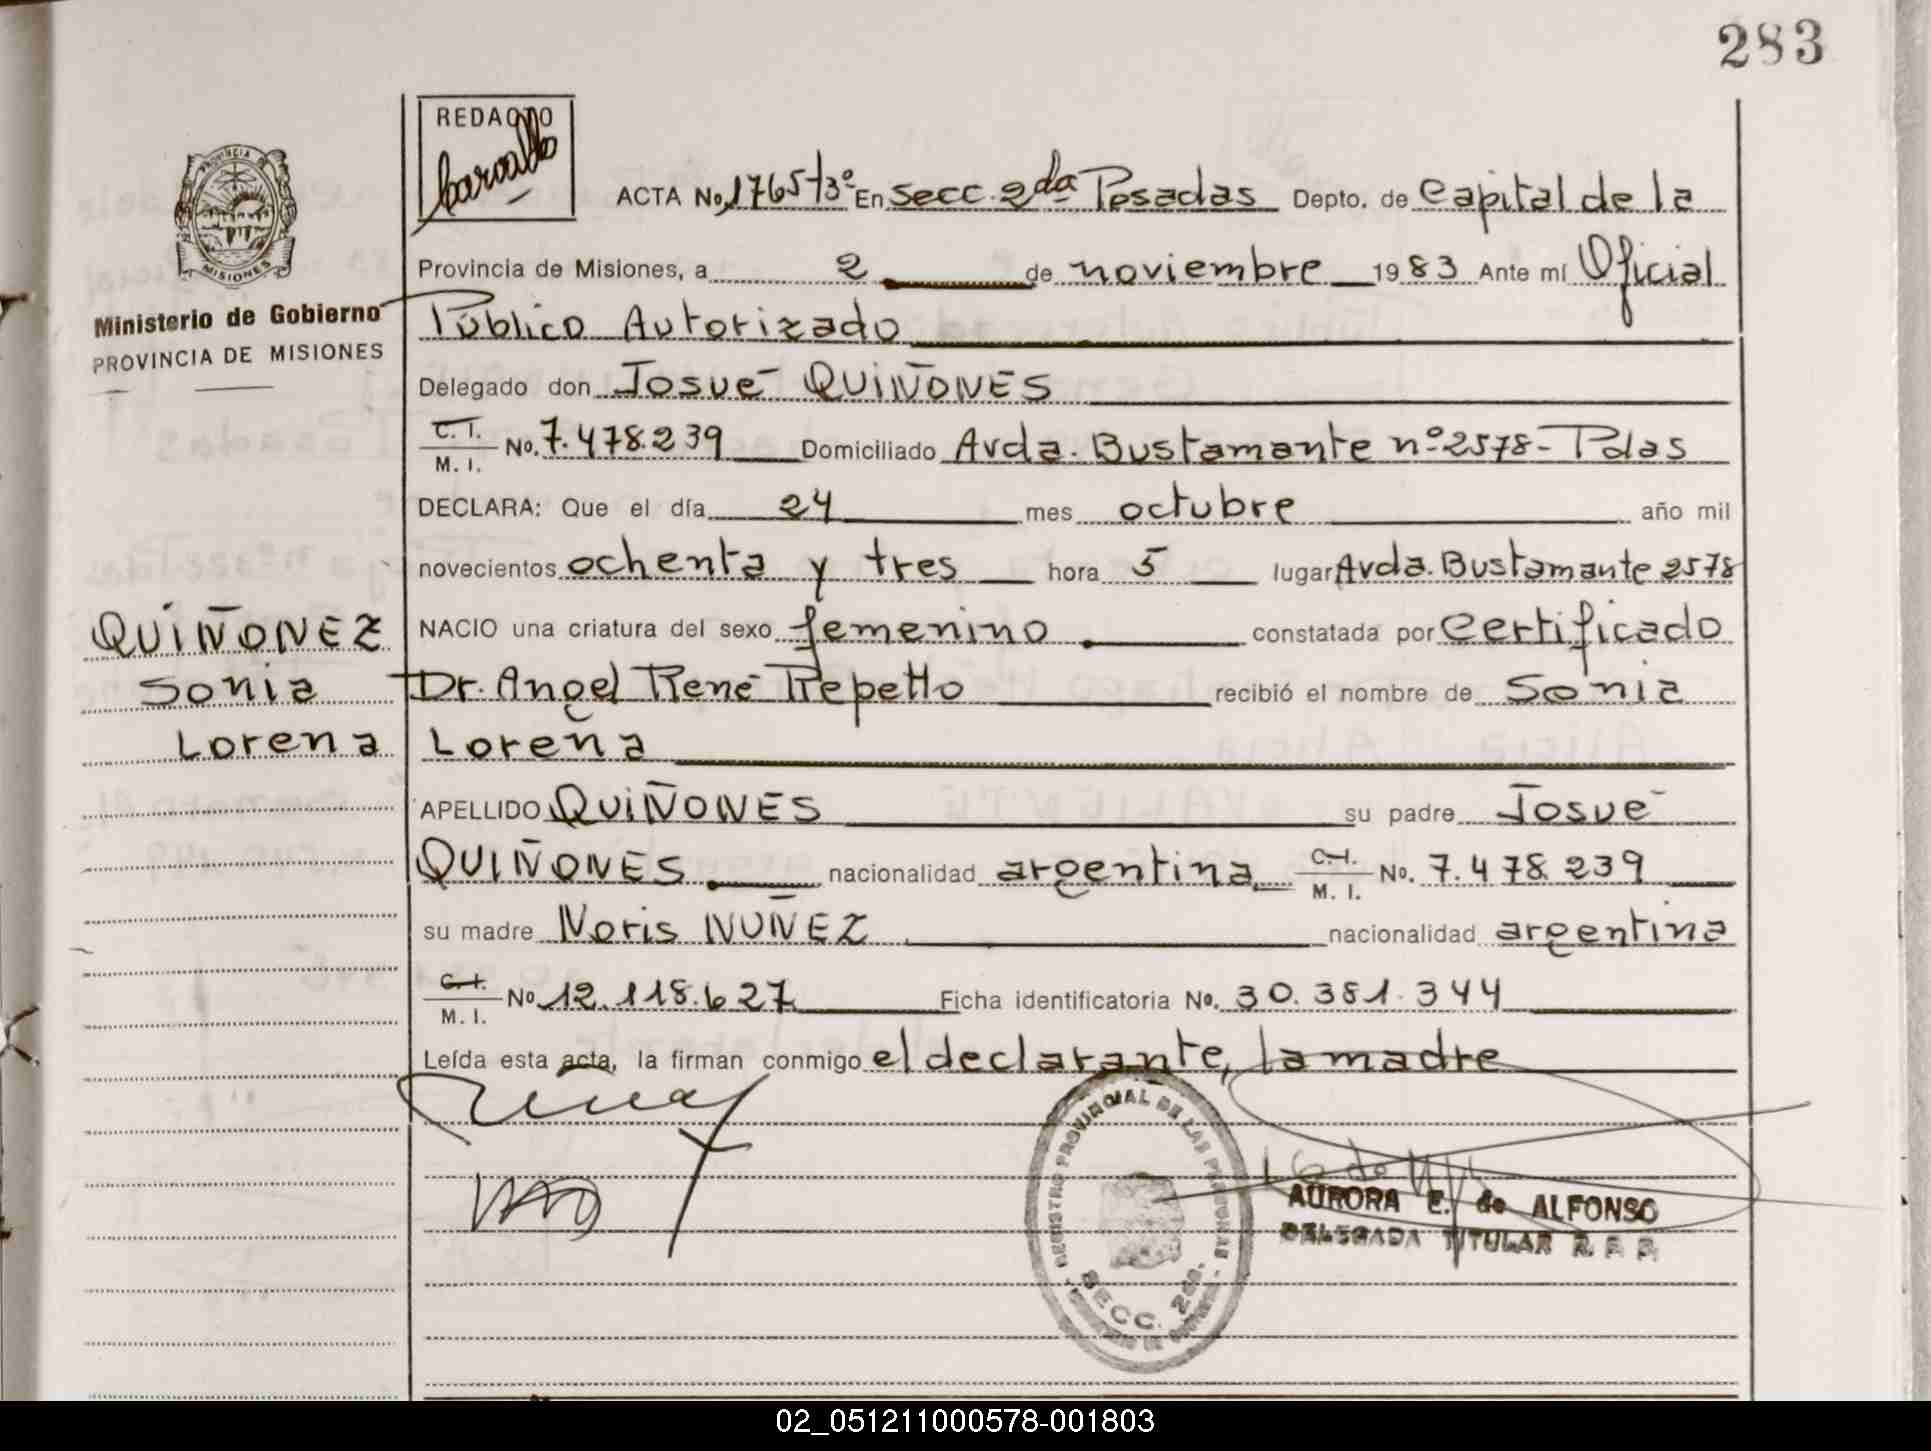 283
REDACTO
Carvallo
ACTA No. 1765 T3º En Secc. 2da Posadas Depto. de Capital de la
Provincia de Misiones, a 2 de noviembre 1983 Ante mí Oficial
Público Autorizado
PROVINCIA DE
MISIONES
Ministerio de Gobierno
PROVINCIA DE MISIONES
Delegado don Josué QUIÑONES
C. I.
M. I. No. 7.478.239 Domiciliado Avda. Bustamante nº 2578- Pdas
DECLARA: Que el día 24 mes octubre año mil
novecientos ochenta y tres hora 5 lugar Avda. Bustamante 2578
NACIO una criatura del sexo femenino constatada por Certificado
Dr. Angel René Repetto recibió el nombre de Sonia
Lorena
QUIÑONEZ
Sonia
Lorena
APELLIDO QUIÑONES su padre Josué
QUIÑONES nacionalidad argentina C. I.
M. I. No. 7.478.239
su madre Noris NUÑEZ nacionalidad argentina
C. I.
M. I. No 12.118.627 Ficha identificatoria No. 30.381.344
Leída esta acta, la firman conmigo el declarante, la madre
REGISTRO PROVINCIAL DE LAS PERSONAS
SECC. 2da.
AURORA E. de ALFONSO
DELEGADA TITULAR R. P. P.
02_051211000578-001803